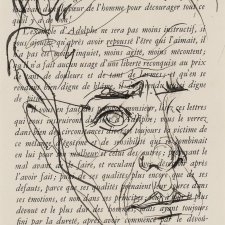 dans le cœur de l'homme pour décourager tout ce
qu'il y a de
L'exemple d'Adolphe ne sera pas moins instructif, si
vous ajoutez qu'après avoir repoussé l'être qui l'aimait, il
n'a pas été moins inquiet, moins agité, moins mécontent;
qu'il n'a fait aucun usage d'une liberté reconquise au prix
de tant de douleurs et de tant de larmes; et qu'en se
rendant bien digne de blâme, il s'est rendu aussi digne
de pitié.
lire ces lettres
qui vous instruiront du sort d'Adolphe; vous le verrez
dans circonstances diverses, et toujours la victime de
ce mélange d'égoïsme et de sensibilité qui se combinait
en lui pour son malheur et celui des autres;
mal avant de le faire, et reculant
de ses qualités plus encore que de ses
défauts, parce que ses qualités prenaient leur source dans
ses émotions, et non dans ses principes; tour à tour le plus
dévoué et le plus dur des hommes, mais ayant toujours
fini par la dureté, après avoir commencé par le dévoue-